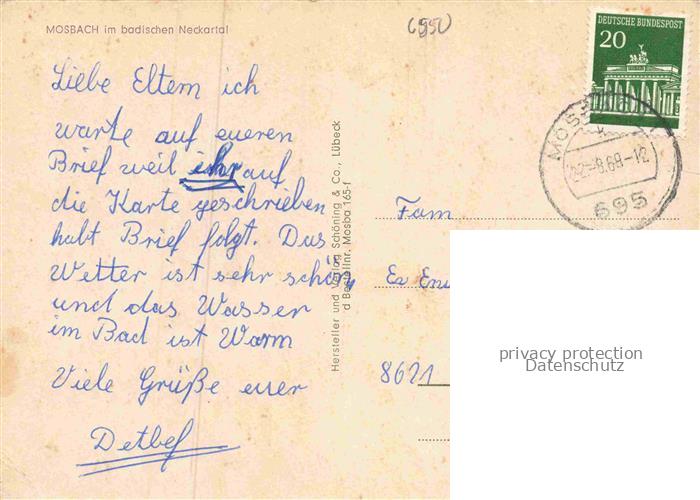 MOSBACH im badischen Neckartal
6950
DEUTSCHE BUNDESPOST
20
MOSB
-8.68-12
695
Liebe Eltern ich
warte auf eueren
Brief weil ihr auf
die Karte geschrieben
habt Brief folgt. Das
Wetter ist sehr schön
und das Wasser
im Bad ist Warm
Viele Grüße euer
Detlef
Hersteller und Verlag Schöning & Co., Lübeck
d Bestellnr. Mosba 165-f
Fam
8621
privacy protection
Datenschutz